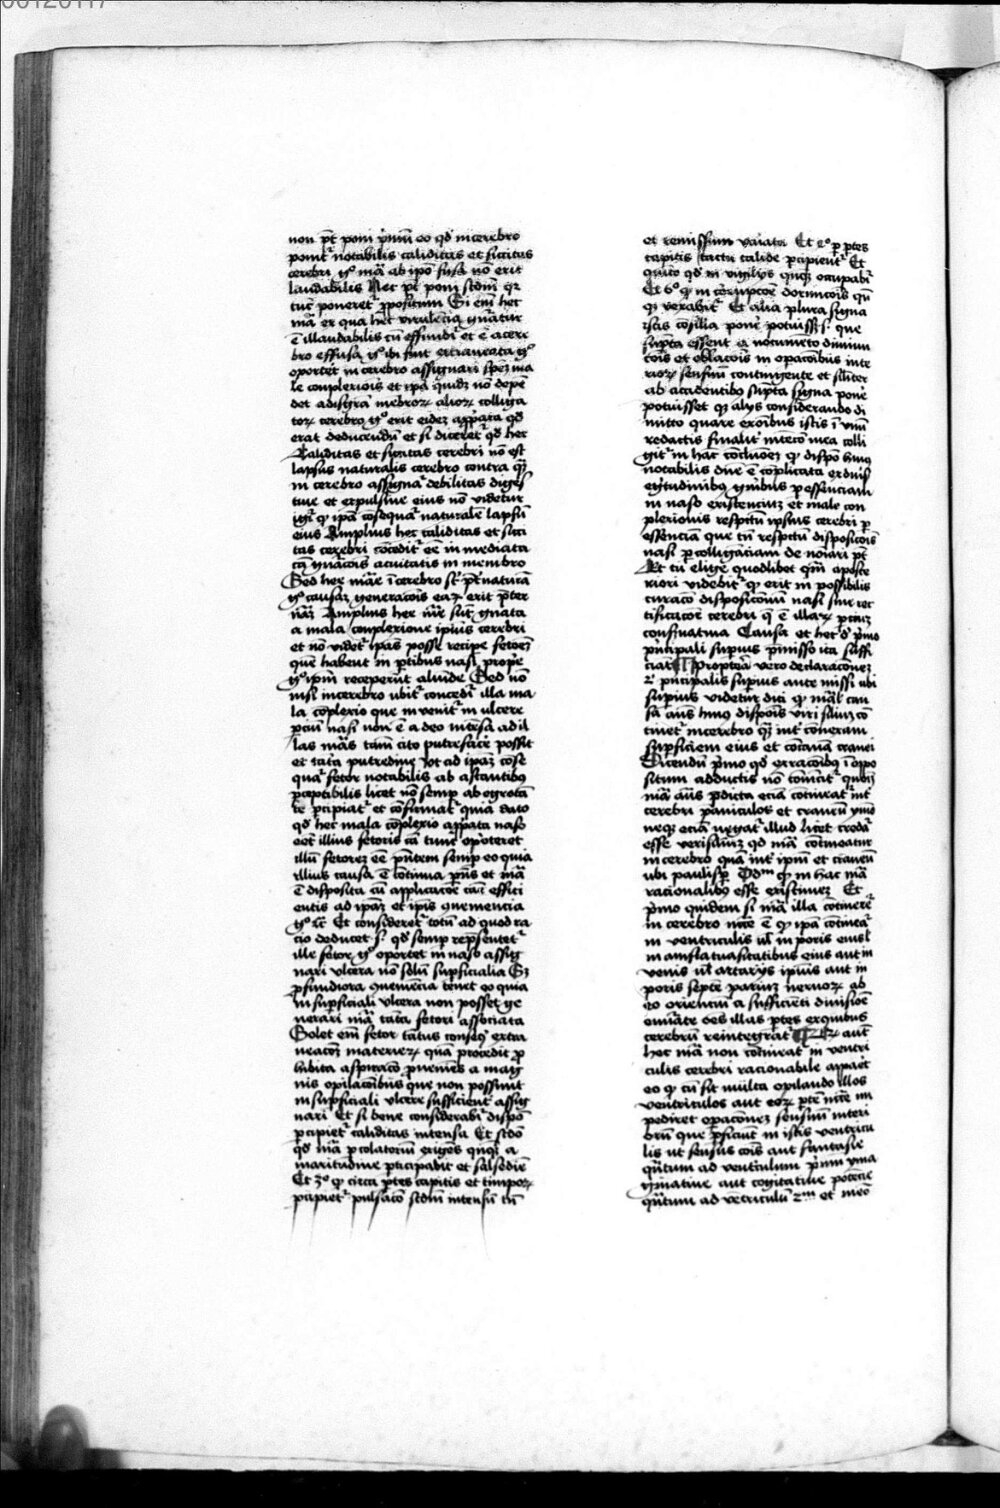 00120117
non pt poni primum eo qd in cerebro
ponit notabilis caliditas et siccitas
cerebri gº mã ab ipo fusa nõ erit
laudabilis Nec pt poni scdm qr
tuc poneret ppositum Si em hec
mã ex qua hec virulecia gnãtur
ẽ illaudabilis cũ effundit et ẽ a cere
bro effusa gº ibi sint
oportet in cerebro assignari spẽz ma
le complexiois et ipa quidz nõ depẽ
det a disgrã mẽbroꝝ alioꝝ colliga
toꝝ cerebro gº erit eidez apprata qd
erat deducendũ et si diceret qd hec
Caliditas et siccitas cerebri nõ est
lapsus naturalis cerebro contra
in cerebro assignat debilitas diges
tiue et expulsiue eius nõ videtur
igr qp ipã cõsequat naturalẽ lapsũ
eius Amplius hec caliditas et sicci
tas cerebri cõcedit eẽ in mediata
cã gnãcois acuitatis in membro
Sed hec mãe ĩ cerebro st pt naturã
gº causaz generacois eaꝝ erit pter
nãz Amplius hec mãe sũt gnata
a mala complexione ipius cerebri
et nõ videt ipas posse recipe fetorẽ
quẽ habent in ptibus nasi prope
gº ipm receperũt aliunde Sed nõ
nisi in cerebro ubi concedit illa ma
la cõplexio que inuenit in ulcere
pciũ nasi non ẽ adeo intẽsa ad il
las mãs tam cito putrefacẽ possit
et tãta putredine vt ad ipaz cõse
quat fetor notabilis ab astantibus
pceptibilis licet nõ semp ab egrotã
te pcipiat et cõfirmat quia dato
qd hec mala cõplexio apprata naso
eẽt illius fetoris cã tunc oporteret
illũ fetorez eẽ pñtem semp eo quia
illius causa ẽ cõtinua pñs et mã
ẽ disposita cũ applicacõe cãe effici
entis ad ipaz et ipis
gº Et consideret totũ ad quod ra
cio deducet s. qd semp represẽtet
ille fetor gº oportet in naso assig
nari ulcera nõ solũ supficialia Sz
pfundiora tenet eo quia
in supficiali ulcera non posset ge
nerari mã tãta fetori associata
Solet em fetor tãtus conseq extra
neacoz materieꝝ quã procedit p
hibita aspiracõ puenies a mag
nis opilacõibus que non possunt
in supficiali ulcere sufficient assig
nari Et si bene considerabit dispõ
pcipiet caliditas intensa Et scdo
qd mã p colatoriũ exigẽs a
maritudine pticipabit et salsedie
Et 3º qp circa ptes capitis et timpoꝝ
pcipiet pulsacõ scdm intensũ tm
et remissum variata Et 4º p ptes
capitis tactu calide pcipient Et
quito qd in vigilijs occupabit
Et 6º qp in corrupcoe dormicois qñ
qp Et alia plura signa
istis cõsilia ponẽ potuisset s. que
supta essent a nocumẽto diminu
cois et ablacois in opacõibus inte
rioꝝ sensuũ contingente et sliter
ab accidentibus supta signa ponẽ
potuisset qz alijs considerando di
mitto quare exõibus istis ĩ vnũ
redactis finalit intẽcio mea colli
git in hac cõclusioez qp dispõ huius
notabilis diuẽ ẽ cõplicata ex duis
egritudinibus quibus p essenciam
in naso existenciuz et male con
plexionis respctũ ipsius cerebri p
essẽnciam que tñ respctũ disposicois
nasi p colliganciam denoiari pt
Et tu elige quodlibet qm aposte
riori videbit qp erit in possibilis
curacõ disposicionũ nasi sine rec
tificacoẽ cerebri qz ẽ illaꝝ pciuz
consuatiua Causa et hec d pmo
pncipali supius pmisso ita suffi
ciat ¶ Propterã vero declaracionez
2i pncipalis supius ante missi ubi
supius videtur dici qp mãl cau
sã aũs huius dispõis viri
tinet in cerebro qz int conexam
supficiem eius et cõcauã cranei
Dicendũ pmo qd exracõibus ĩ oppo
situm adductis nõ cõuincit
mã aũs pdicta eciã cõtineat int
cerebri paniculos et craneũ ymo
neqz eciã negat illud licet credã
esse verisimiliz qd mã contineatur
in cerebro quã int ipm et craneũ
ubi paulisp Odm qp in hac mã
racionalibus esse existimez Et
pmo quidem si mã illa cõtinere
in cerebro nccẽ ẽ qp ipã cõtineat
in ventriculis ul in poris eius l
in amfractuasitatibus eius aut in
venis ul artarijs ipius aut in
poris septẽ pariuz neruoꝝ ab
eo orienciũ a sufficiẽti diuisioẽ
oẽs illas ptes ex quibus
cerebrũ reintegrat ¶ Qz aut
hec mã non cõtineat in ventri
culis cerebri racionabile apparet
eo qp cũ sit multa opilando illos
ventriculos aut eoꝝ ptẽ nccẽ im
pediret opacõnez sensuũ interi
oꝝ que pficiunt in istis ventricu
lis ut sensus cõis aut fantasie
qtum ad ventriculum pmum yma
ginatiue aut cogitatiue potẽcie
qtum ad vẽtriculũ 2m et meõ